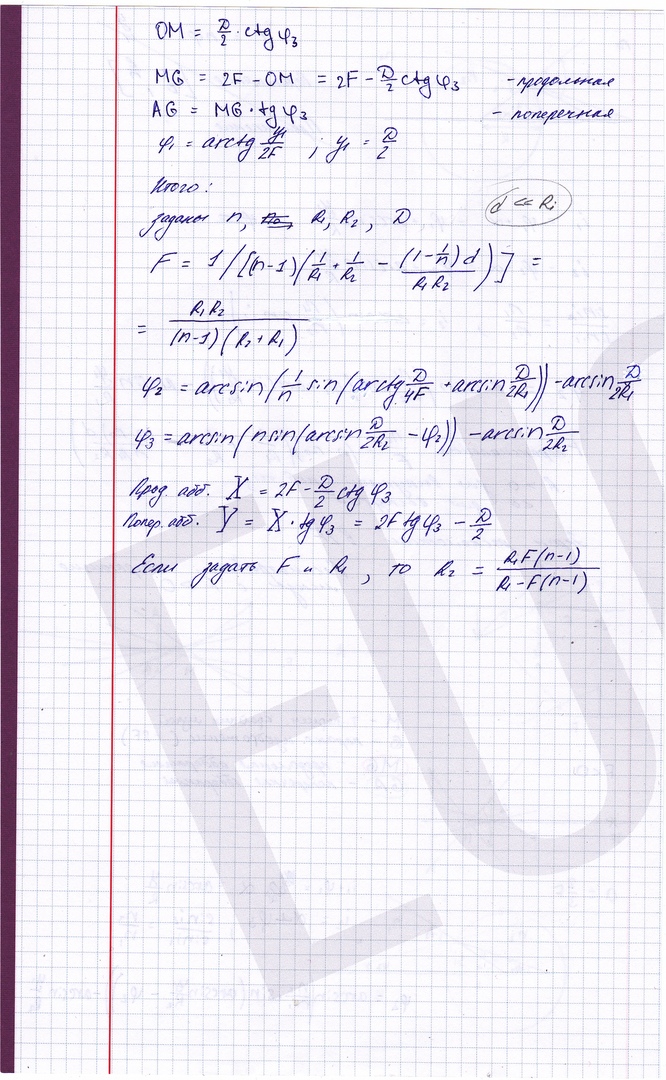 OM = D/2 · ctg φ₃
MG = 2F - OM = 2F - D/2 ctg φ₃ - продольная
AG = MG · tg φ₃ - поперечная
φ₁ = arctg y₁/2F ; y₁ = D/2
Итого:
d << Rᵢ
заданы n, R₁, R₂, D
F = 1/[(n-1)(1/R₁ + 1/R₂ - (1-1/n)d/R₁R₂)] =
= R₁R₂/(n-1)(R₂+R₁)
φ₂ = arcsin(1/n sin(arctg D/4F + arcsin D/2R₁)) - arcsin D/2R₁
φ₃ = arcsin(n sin(arcsin D/2R₂ - φ₂)) - arcsin D/2R₂
Прод. абб. X = 2F - D/2 ctg φ₃
Попер. абб. Y = X · tg φ₃ = 2F tg φ₃ - D/2
Если задать F и R₁, то R₂ = R₁F(n-1)/R₁-F(n-1)